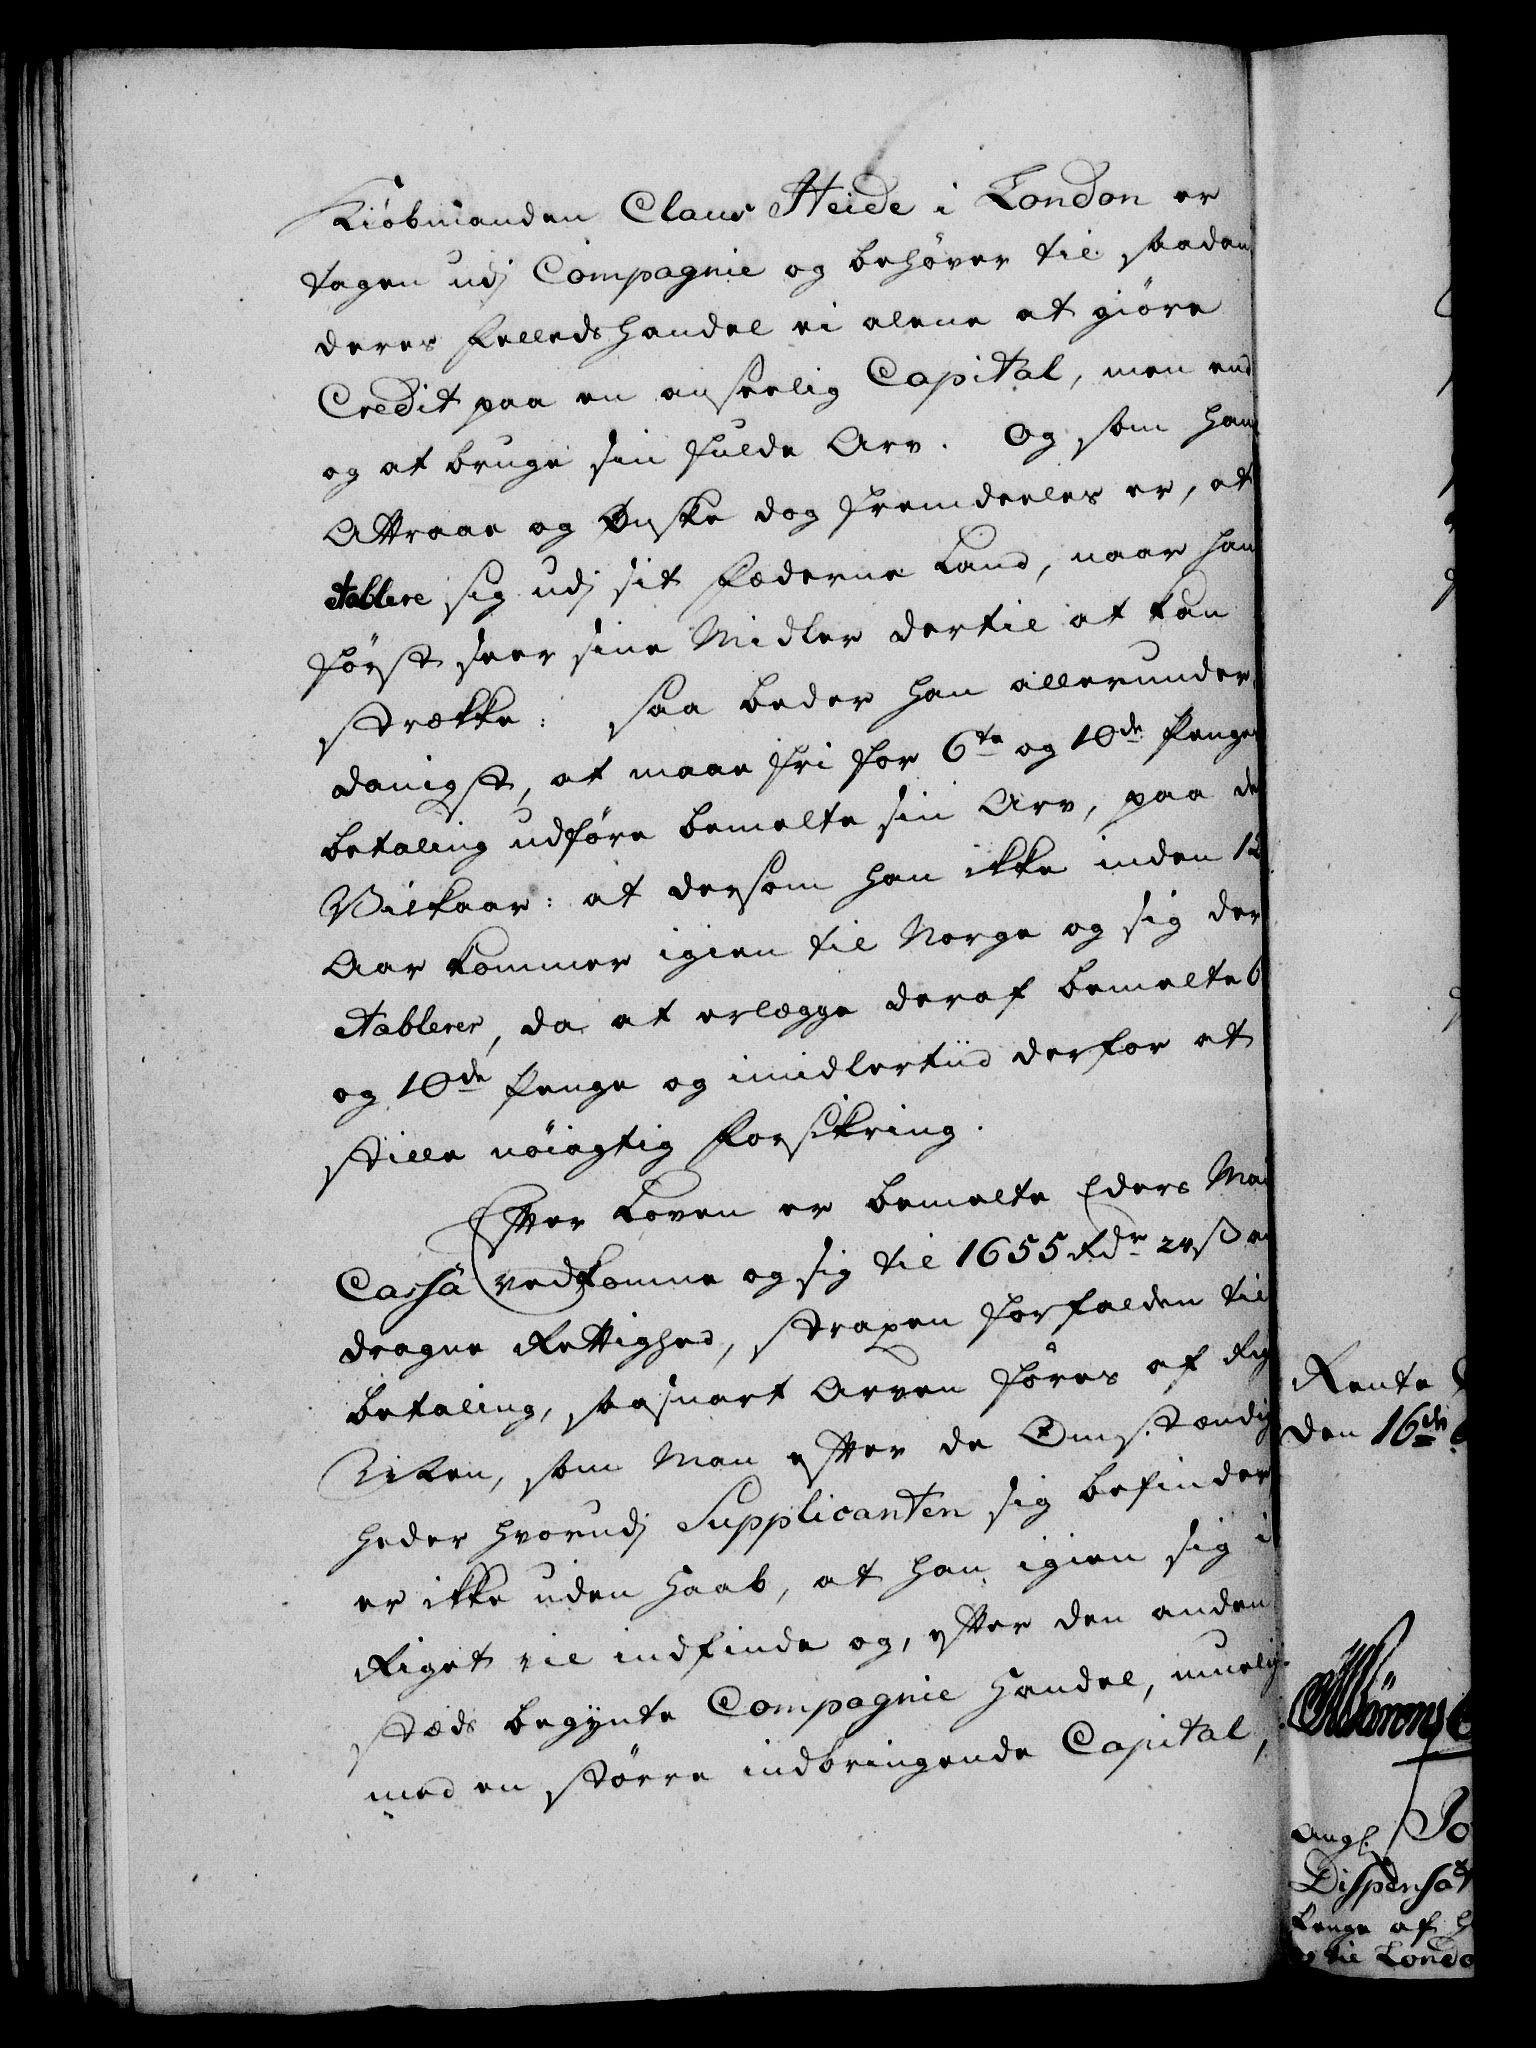 Kiöbmanden Claus Heide i London er
tagen udj Compagnie og behøver til saadan
deres Felledshandel ei alene at giöre
Credit paa en anseelig Capital, men end
og at bruge sin fulde Arv. Og som hans
Attraae og Ønske dog fremdeeles er, at
etablere sig udj sit Fæderne Land, naar han
först seer sine Midler dertil at kan
strække: saa beder han allerunder
danigst, at maae fri for 6te og 10de Penges
betaling udføre bemelte sin Arv, paa de
Vilkaar: at dersom han ikke inden 12
Aar kommer igien til Norge og sig der
etablerer, da at erlægge deraf bemelte 6
og 10de Penge og imidlertiid derfor at
stille nöiagtig Forsikring.
Efter Loven er bemelte Eders Mai
Cassa vedkomne og sig til 1655 Rdr 24 ß
dragne Rettighed, straxen forfalden til
betaling, saasnart Arven föres af Rig
Riken, som Man efter de Omstændig
heder hvorudj Supplicanten sig befinder
er ikke uden Haab, at han igien sig i
Riget vil indfinde og, efter den anden
stæds begynte Compagnie Handel, muelig
med en större indbringende Capital,
Rente
den 16de
Ang.
Dispensat
Penge af H
til Londo